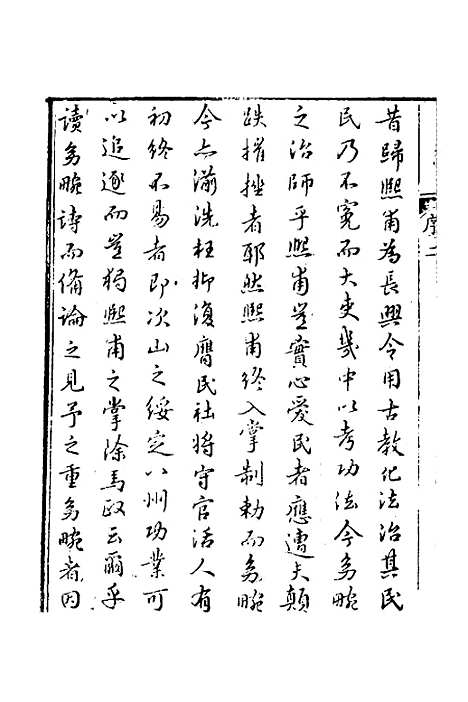 序二
昔歸熙甫為長興令用古教化法治其民
民乃不冤而大吏幾中以考功法今畹
之治師乎熙甫豈實心愛民者應遭夫顛
跌摧挫者耶然熙甫終入掌制勅而畹
今亦湔洗枉抑復膺民社將守官活人有
初終不易者即次山之綏定八州功業可
以追逐而豈獨熙甫之掌除馬政云爾乎
讀畹詩而備論之見予之重畹者因